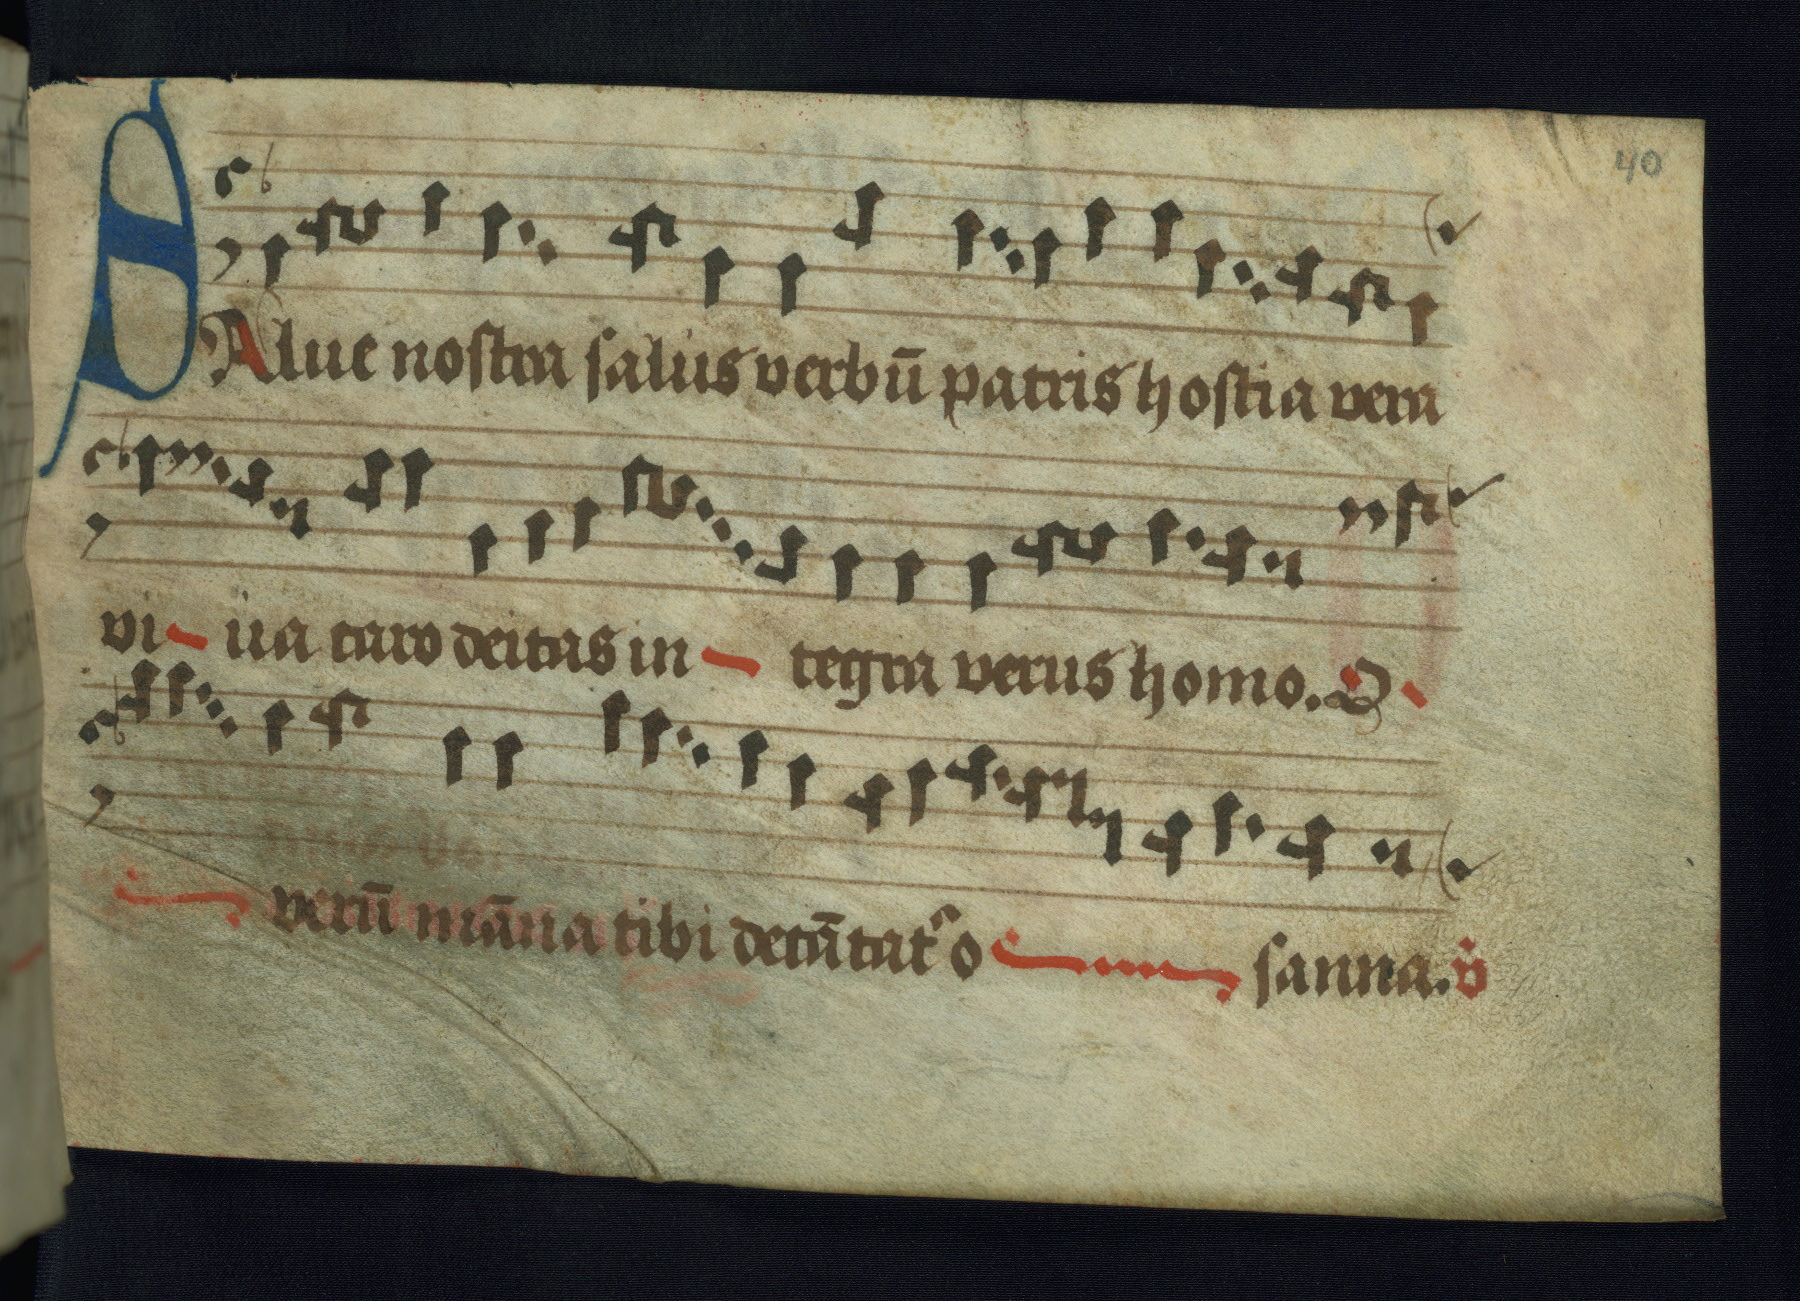 40
SAlue nostra salus verbū patris hostia vera
vi- ua caro deitas in - tegra verus homo. O
verū māna tibi decātat᷑ o sanna. v̄